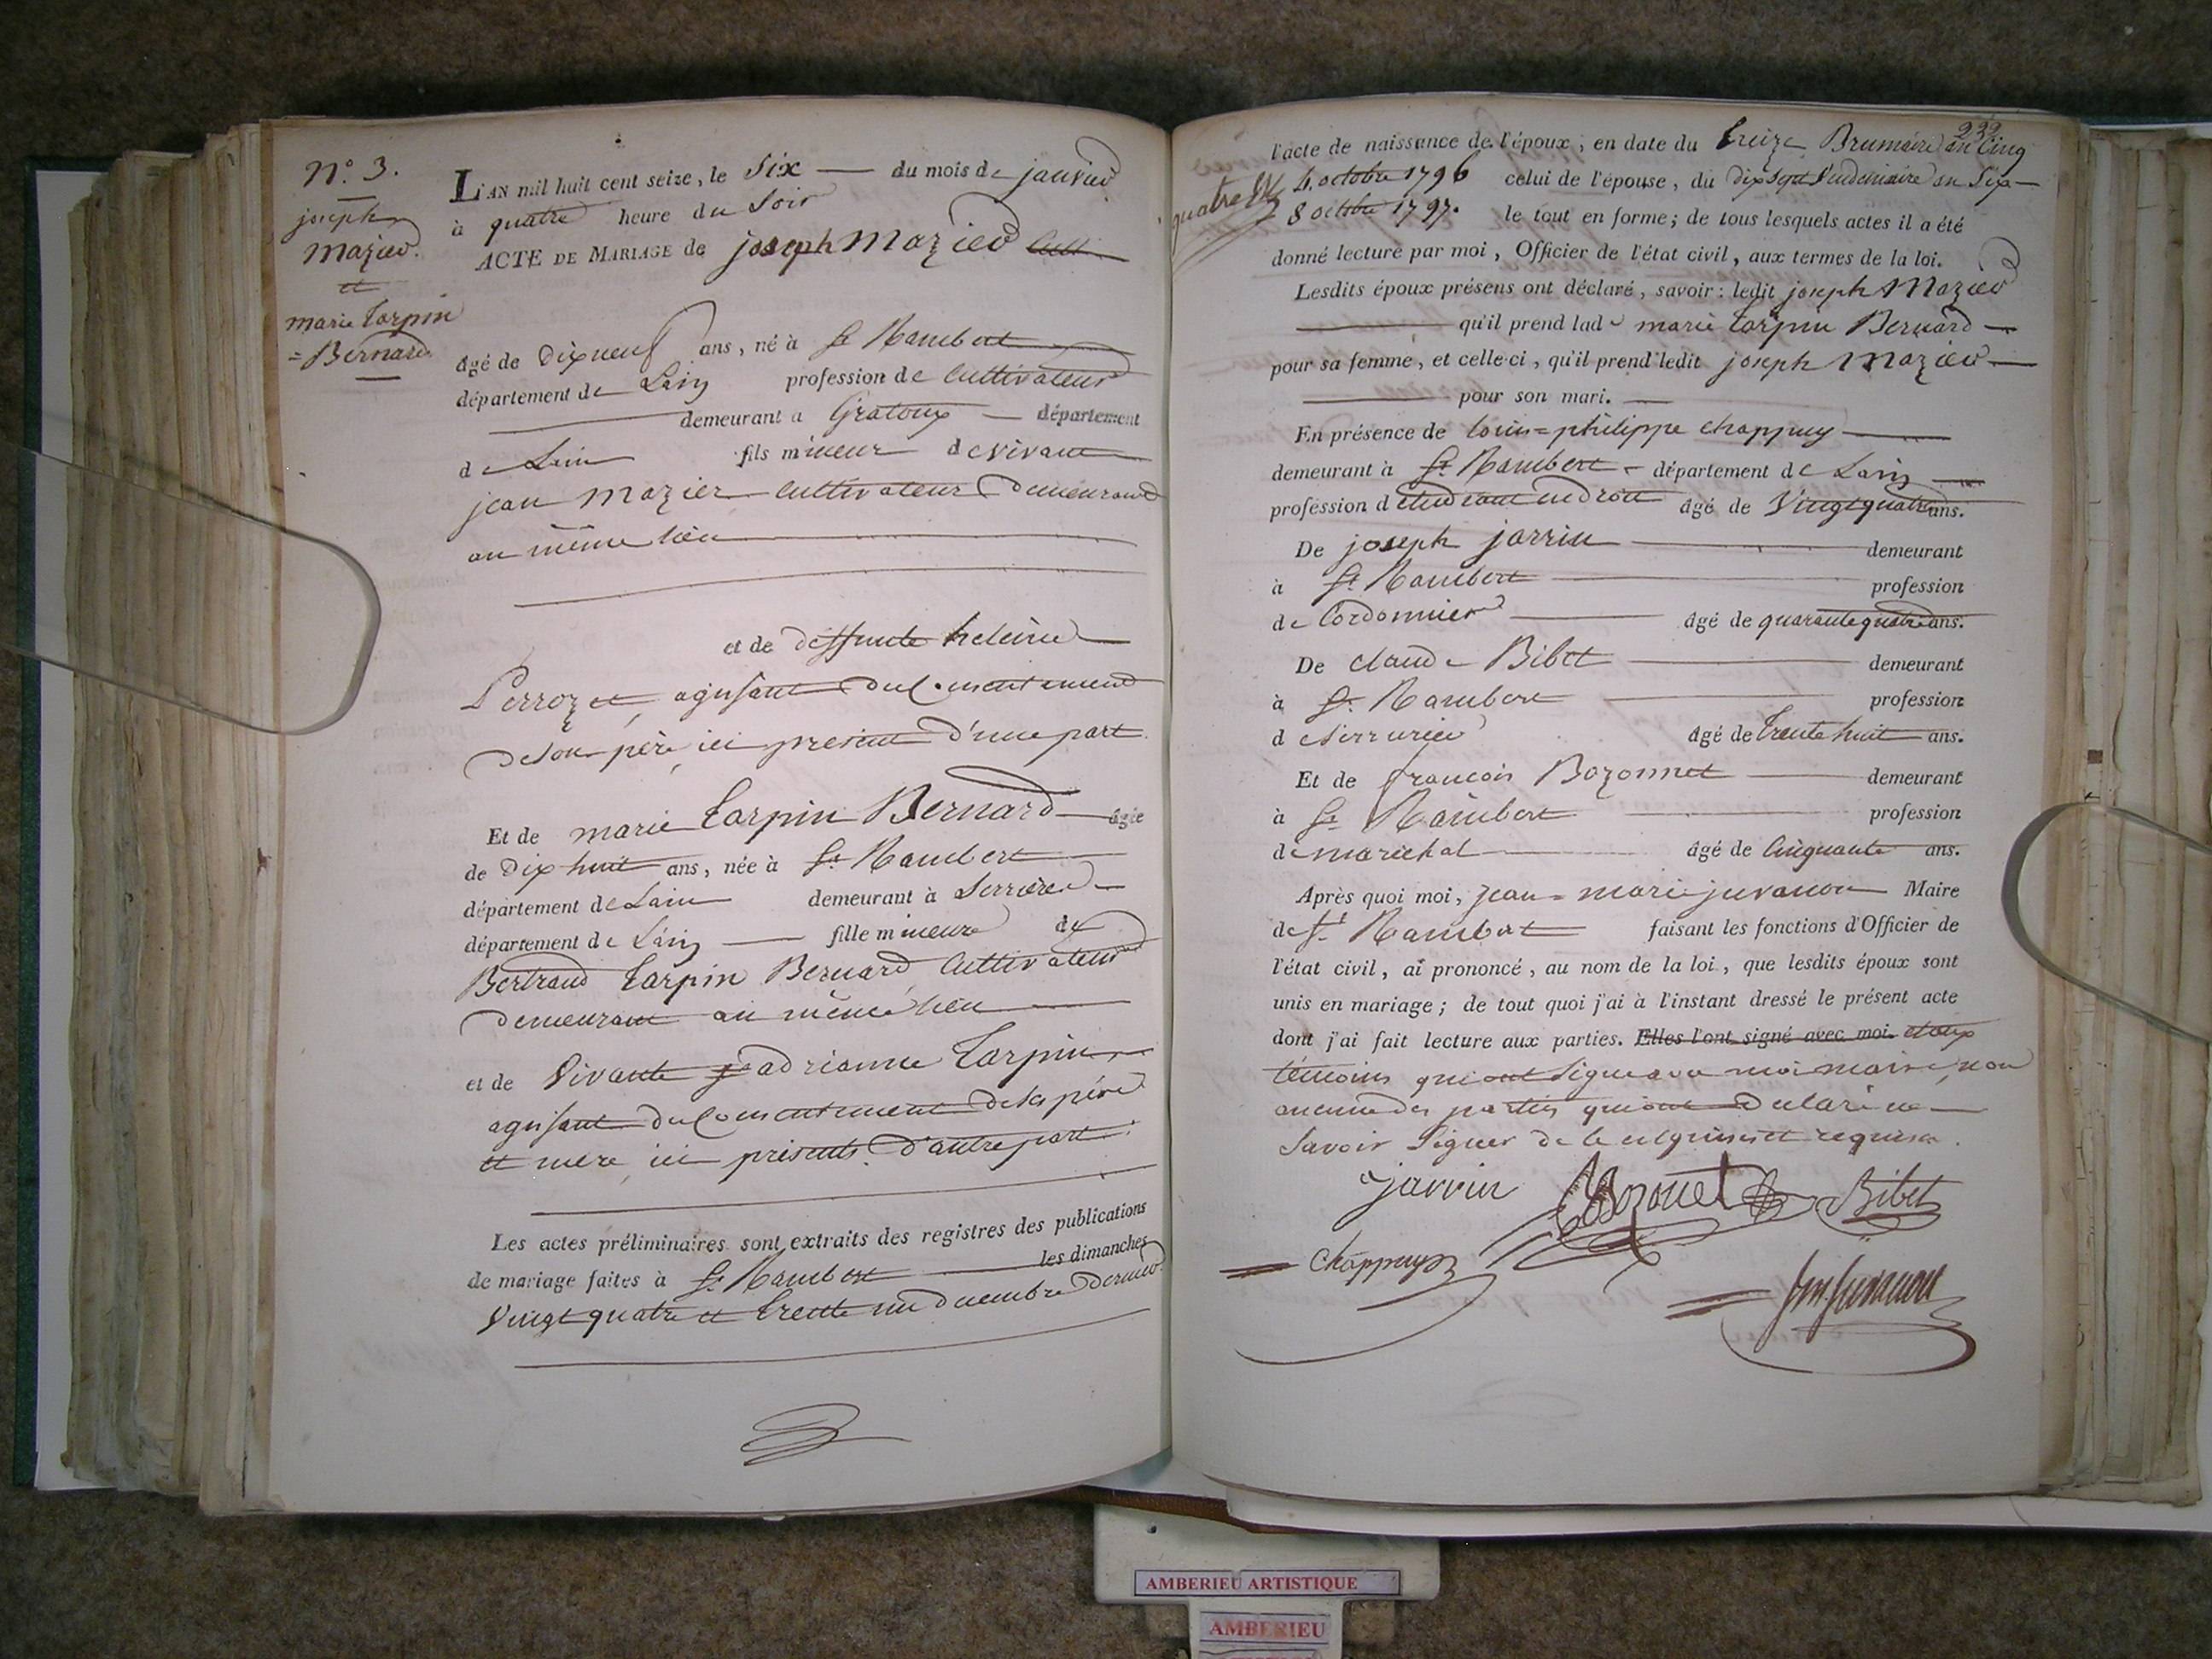 N.° 3.
joseph
mazier.
et
marie tarpin
= Bernard
L'AN mil huit cent seize, le Six du mois de janvier
à quatre heure du Soir
ACTE DE MARIAGE de joseph Mazier
âgé de Dixneuf ans, né à St Rambert
département de Lain profession de Cultivateur
demeurant a Gratoux département
de Lain fils mineur de vivant
jean Mazier Cultivateur Demeurant
au même lieu
et de deffunte heleine
Perrozet, agissant du Consentement
de son père, ici present d'une part
Et de marie Tarpin Bernard âgée
de Dix huit ans, née à St Rambert
département de Lain demeurant à Serrieres
département de Lain fille mineure de
Bertrand Tarpin Bernard Cultivateur
Demeurant au même lieu
et de Vivante adrianne Tarpin
agissant du Consentement de ses père
et mere, ici présents. D'autre part.
Les actes préliminaires sont extraits des registres des publications
de mariage faites à St Rambert les dimanches
Vingt quatre et trente un decembre Dernier
232
l'acte de naissance de l'époux, en date du treize Brumaire an Cinq
4. octobre 1796 celui de l'épouse, du dix Sept Vendemiaire an Six
8 octobre 1797. le tout en forme; de tous lesquels actes il a été
donné lecture par moi, Officier de l'état civil, aux termes de la loi.
Lesdits époux présens ont déclaré, savoir: ledit joseph Mazier
qu'il prend lade marie Tarpin Bernard
pour sa femme, et celle-ci, qu'il prend ledit joseph Mazier
pour son mari.
En présence de louis=philippe Chappuy
demeurant à St Rambert département de Lain
profession d étudiant en droit âgé de Vingt quatre ans.
De joseph jarrin demeurant
à St Rambert profession
de Cordonnier âgé de quarante quatre ans.
De claude Bibet demeurant
à St. Rambert profession
de Serrurier âgé de trente huit ans.
Et de francois Bozonnet demeurant
à St Rambert profession
de maréchal âgé de Cinquante ans.
Après quoi moi, jean=marie juvanon Maire
de St Rambert faisant les fonctions d'Officier de
l'état civil, ai prononcé, au nom de la loi, que lesdits époux sont
unis en mariage; de tout quoi j'ai à l'instant dressé le présent acte
dont j'ai fait lecture aux parties. Elles l'ont signé avec moi. et aux
témoins qui ont Signé avec moi maire, non
aucune des parties qui ont Declaré ne
Savoir Signer de ce enquises et requises.
jarrin Bozonet Bibet
Chappuy
jm. juvanon
AMBERIEU ARTISTIQUE
AMBERIEU